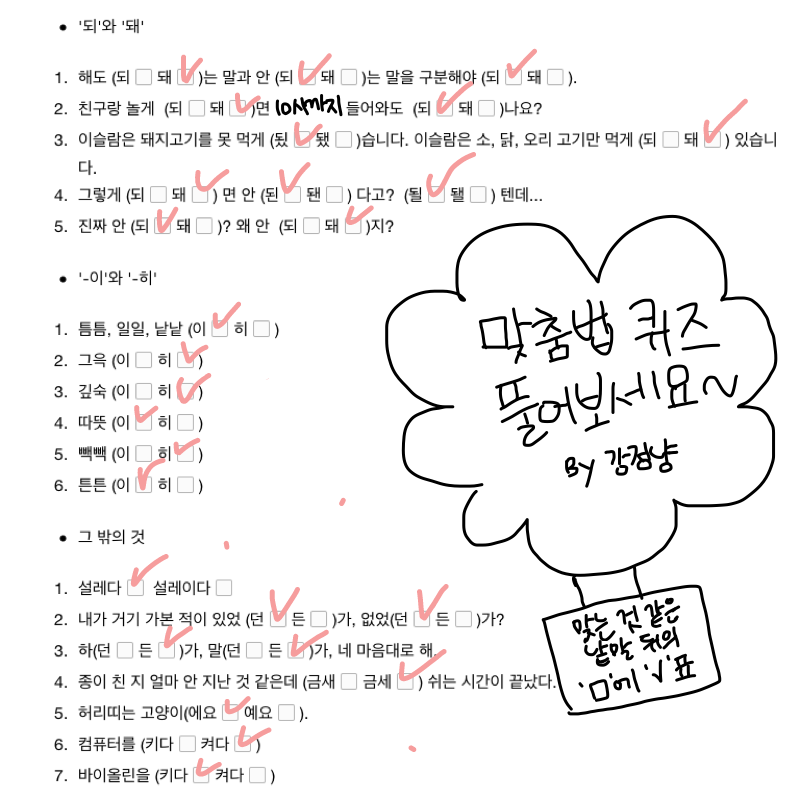 • '되'와 '돼'
1. 해도 (되 □ 돼 ☑)는 말과 안 (되 ☑ 돼 □)는 말을 구분해야 (되 ☑ 돼 □).
2. 친구랑 놀게 (되 □ 돼 ☑)면 10시까지 들어와도 (되 ☑ 돼 □)나요?
3. 이슬람은 돼지고기를 못 먹게 (됬 ☑ 됐 □)습니다. 이슬람은 소, 닭, 오리 고기만 먹게 (되 □ 돼 ☑) 있습니
다.
4. 그렇게 (되 □ 돼 ☑) 면 안 (된 ☑ 됀 □) 다고? (될 ☑ 됄 □) 텐데...
5. 진짜 안 (되 ☑ 돼 □)? 왜 안 (되 □ 돼 ☑)지?
• '-이'와 '-히'
1. 틈틈, 일일, 낱낱 (이 ☑ 히 □)
2. 그윽 (이 □ 히 ☑)
3. 깊숙 (이 □ 히 ☑)
4. 따뜻 (이 ☑ 히 □)
5. 빽빽 (이 □ 히 ☑)
6. 튼튼 (이 ☑ 히 □)
• 그 밖의 것
1. 설레다 ☑ 설레이다 □
2. 내가 거기 가본 적이 있었 (던 ☑ 든 □)가, 없었(던 ☑ 든 □)가?
3. 하(던 □ 든 ☑)가, 말(던 □ 든 ☑)가, 네 마음대로 해.
4. 종이 친 지 얼마 안 지난 것 같은데 (금새 □ 금세 ☑) 쉬는 시간이 끝났다.
5. 허리띠는 고양이(에요 ☑ 예요 □).
6. 컴퓨터를 (키다 □ 켜다 ☑)
7. 바이올린을 (키다 ☑ 켜다 □)
맞춤법 퀴즈
풀어보세요~
By 강점냥
맞는 것 같은
낱말 뒤의
'□'에 '√'표